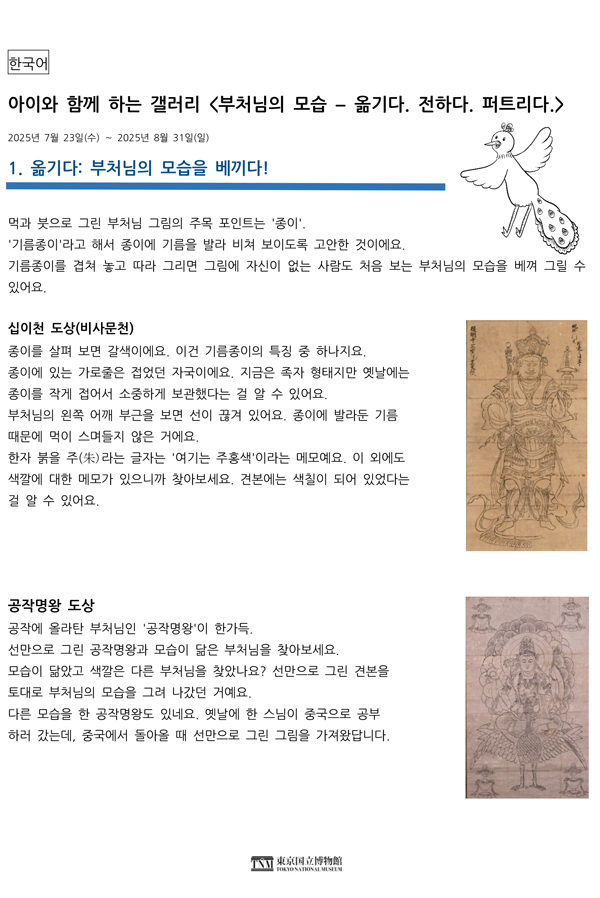 한국어
아이와 함께 하는 갤러리 <부처님의 모습 – 옮기다. 전하다. 퍼트리다.>
2025년 7월 23일(수) ~ 2025년 8월 31일(일)
1. 옮기다: 부처님의 모습을 베끼다!
먹과 붓으로 그린 부처님 그림의 주목 포인트는 '종이'.
'기름종이'라고 해서 종이에 기름을 발라 비쳐 보이도록 고안한 것이에요.
기름종이를 겹쳐 놓고 따라 그리면 그림에 자신이 없는 사람도 처음 보는 부처님의 모습을 베껴 그릴 수
있어요.
십이천 도상(비사문천)
종이를 살펴 보면 갈색이에요. 이건 기름종이의 특징 중 하나지요.
종이에 있는 가로줄은 접었던 자국이에요. 지금은 족자 형태지만 옛날에는
종이를 작게 접어서 소중하게 보관했다는 걸 알 수 있어요.
부처님의 왼쪽 어깨 부근을 보면 선이 끊겨 있어요. 종이에 발라둔 기름
때문에 먹이 스며들지 않은 거에요.
한자 붉을 주(朱)라는 글자는 '여기는 주홍색'이라는 메모예요. 이 외에도
색깔에 대한 메모가 있으니까 찾아보세요. 견본에는 색칠이 되어 있었다는
걸 알 수 있어요.
공작명왕 도상
공작에 올라탄 부처님인 '공작명왕'이 한가득.
선만으로 그린 공작명왕과 모습이 닮은 부처님을 찾아보세요.
모습이 닮았고 색깔은 다른 부처님을 찾았나요? 선만으로 그린 견본을
토대로 부처님의 모습을 그려 나갔던 거예요.
다른 모습을 한 공작명왕도 있네요. 옛날에 한 스님이 중국으로 공부
하러 갔는데, 중국에서 돌아올 때 선만으로 그린 그림을 가져왔답니다.
TNM 東京国立博物館
TOKYO NATIONAL MUSEUM